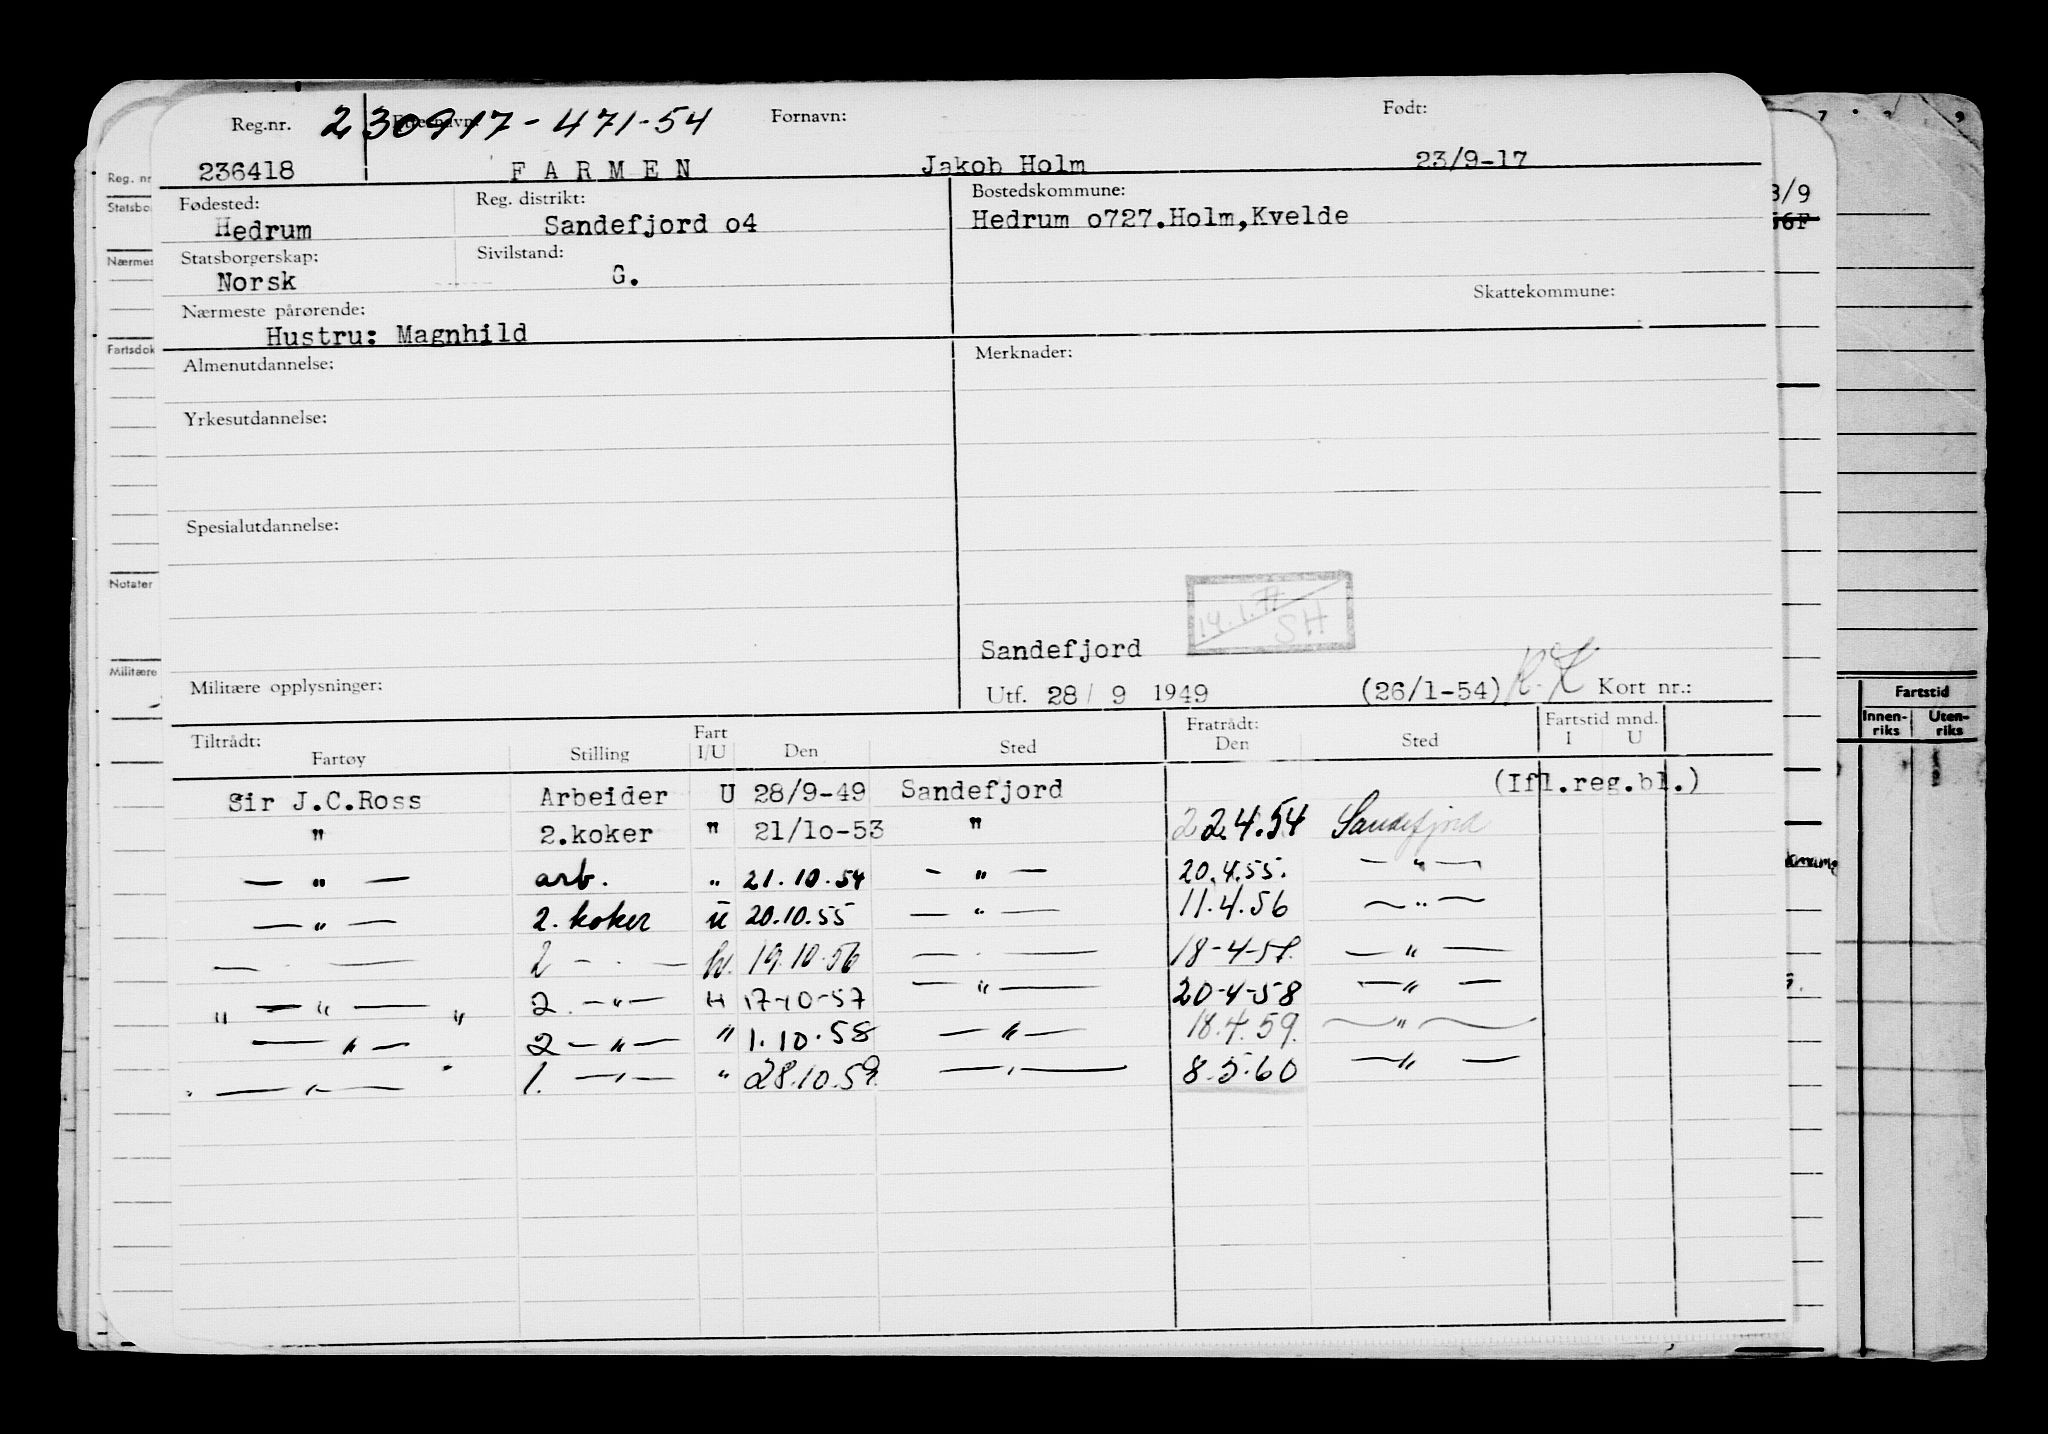 Reg.nr. 230917-471-54 Etternavn: Fornavn: Født:
236418 F A R M E N Jakob Holm 23/9-17
Fødested: Reg. distrikt: Bostedskommune:
Hedrum Sandefjord o4 Hedrum o727.Holm,Kvelde
Statsborgerskap: Sivilstand:
Norsk G.
Nærmeste pårørende: Skattekommune:
Hustru: Magnhild
Almenutdannelse: Merknader:
Yrkesutdannelse:
Spesialutdannelse:
SH
Sandefjord
Militære opplysninger: Utf. 28/ 9 1949 (26/1-54) Kort nr.:
Tiltrådt: Fart Fratrådt: Fartstid mnd.
Fartøy Stilling I/U Den Sted Den Sted I U
Sir J.C.Ross Arbeider U 28/9-49 Sandefjord (Ifl.reg.bl.)
" 2.koker " 21/1o-53 " 22.4.54 Sandefjord
— " — arb. " 21.10.54 — " — 20.4.55. — " —
— " — 2. koker U 20.10.55 — " — 11.4.56 — " —
— " — 2 — " — 19.10.56 — " — 18-4-57. — " —
" — " — " 2. — " — H 17-10-57 — " — 20-4-58 — " —
— " — 2 — " — " 1.10.58 — " — 18.4.59. — " —
" — " — " 1. — " — " 28.10.59. — " — 8.5.60 — " —
Reg. nr
Statsbo
Nærmes
Fartsdok
Notater
Militære
3/9
56F
Fartstid
Innen-riks Uten-riks